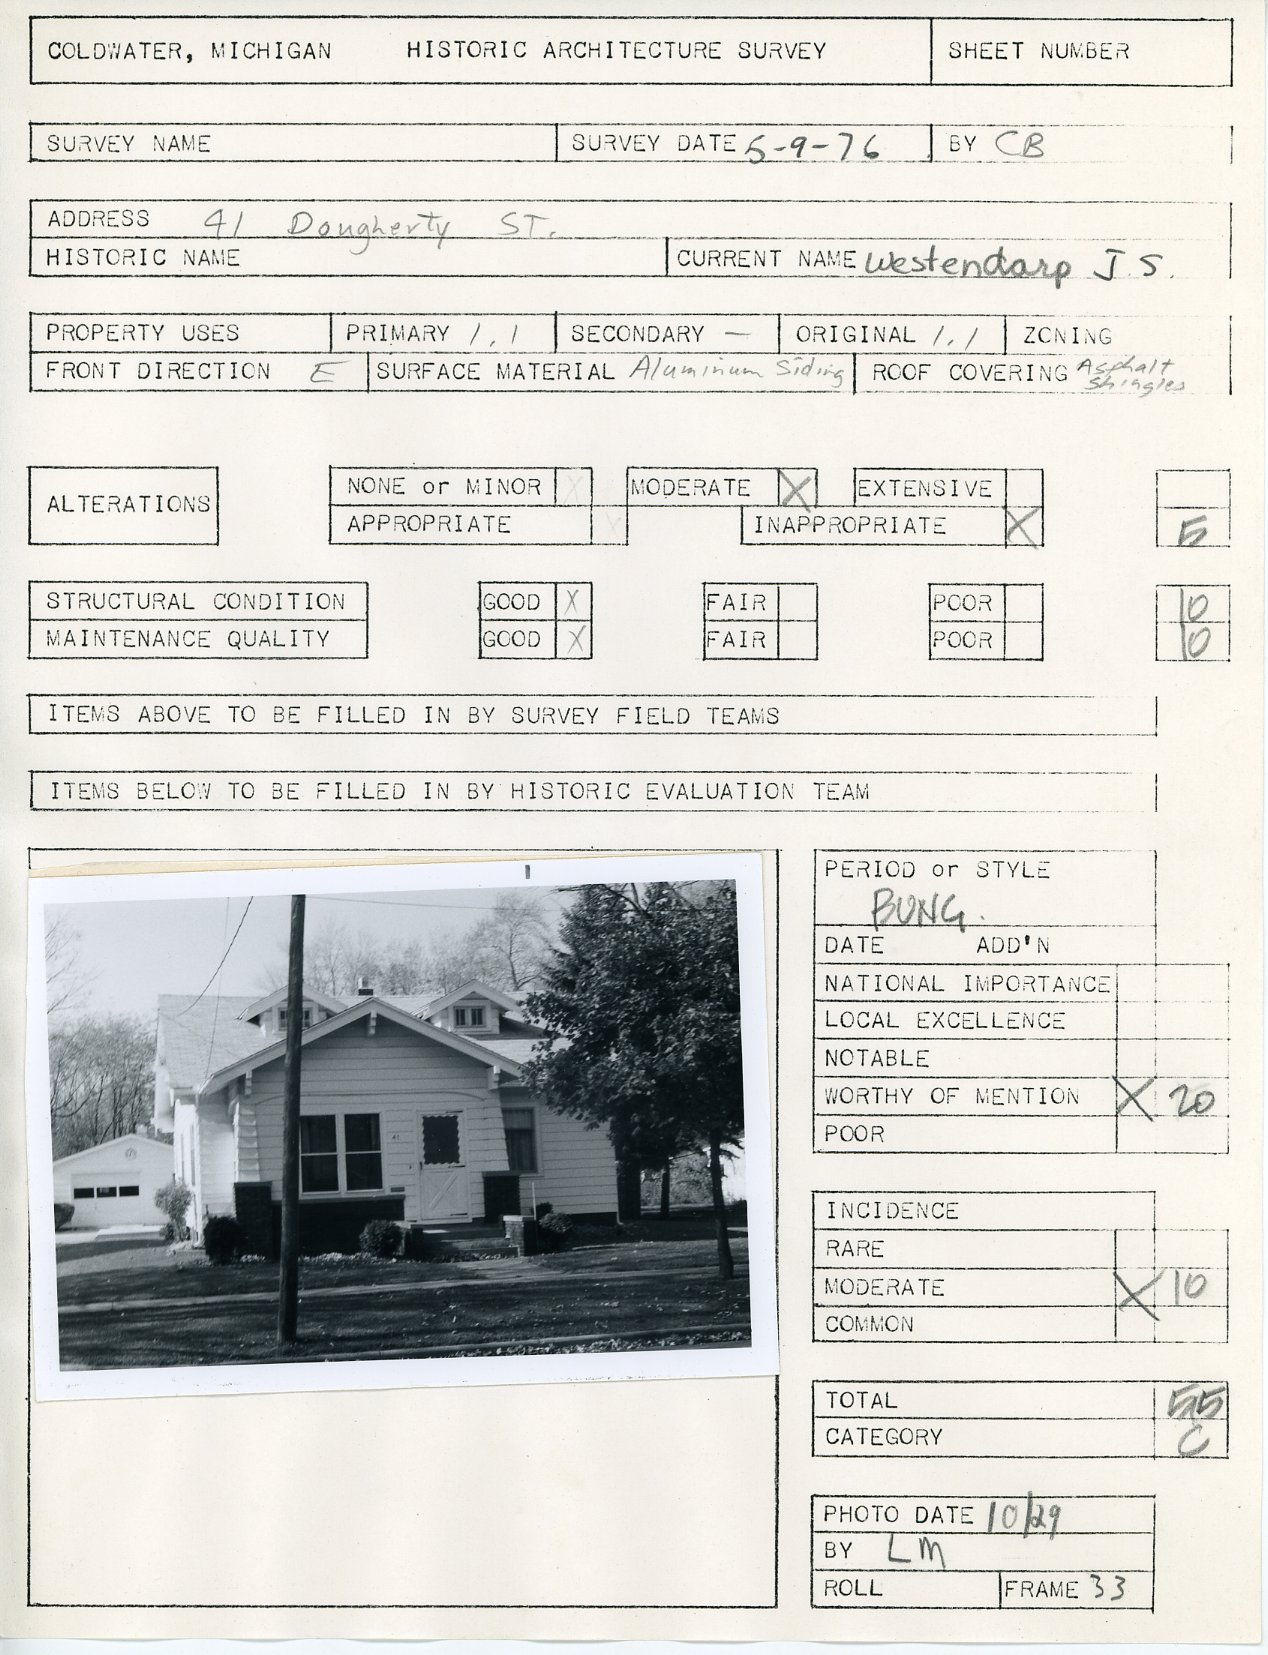 COLDWATER, MICHIGAN HISTORIC ARCHITECTURE SURVEY SHEET NUMBER
SURVEY NAME SURVEY DATE 5-9-76 BY CB
ADDRESS 41 Dougherty ST.
HISTORIC NAME CURRENT NAME Westendarp J S.
PROPERTY USES PRIMARY 1.1 SECONDARY — ORIGINAL 1.1 ZONING
FRONT DIRECTION E SURFACE MATERIAL Aluminum Siding ROOF COVERING Asphalt Shingles
ALTERATIONS NONE or MINOR X MODERATE X EXTENSIVE
APPROPRIATE X INAPPROPRIATE X 5
STRUCTURAL CONDITION GOOD X FAIR POOR 10
MAINTENANCE QUALITY GOOD X FAIR POOR 10
ITEMS ABOVE TO BE FILLED IN BY SURVEY FIELD TEAMS
ITEMS BELOW TO BE FILLED IN BY HISTORIC EVALUATION TEAM
41
PERIOD or STYLE
BUNG.
DATE ADD'N
NATIONAL IMPORTANCE
LOCAL EXCELLENCE
NOTABLE
WORTHY OF MENTION X 20
POOR
INCIDENCE
RARE
MODERATE X 10
COMMON
TOTAL 55
CATEGORY C
PHOTO DATE 10/29
BY LM
ROLL FRAME 33